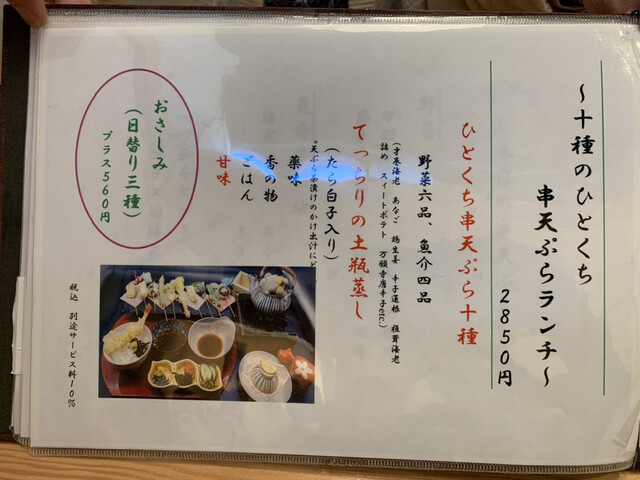 ～十種のひとくち
串天ぷらランチ～
2850円
ひとくち串天ぷら十種
野菜六品、魚介四品
(才巻海老 あなご 鶏生姜 辛子蓮根 椎茸海老
詰め スイートポテト 万願寺唐辛子etc.)
てっちりの土瓶蒸し
(たら白子入り)
"天ぷら茶漬けのかけ出汁にど
薬味
香の物
ごはん
甘味
おさしみ
(日替り三種)
プラス560円
税込 別途サービス料10%